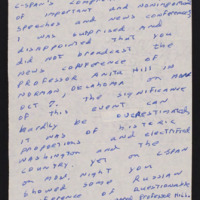 C-SPAN'S COMPLETION
OF IMPORTANT AND NONIMPORTANT
SPEECHES AND NEWS CONFERENCES
I WAS SURPRISED AND
DISAPPOINTED THAT YOU
DID NOT BROADCAST THE
NEWS CONFERENCE OF
PROFESSOR ANITA HILL IN
NORMAN, OKLAHOMA ON MON
OCT 7. THE SIGNIFICANCE
OF THIS EVENT CAN
HARDLY BE OVERESTIMATED
IT WAS OF HISTORIC
PROPORTIONS AND ELECTRIFIED
WASHINGTON AND THE
COUNTRY.. YET ON C-SPAN
ON MON. NIGHT YOU
SHOWED SOME RUSSIAN
CONFERENCE OF QUESTIONABLE
PROFESSOR HILL